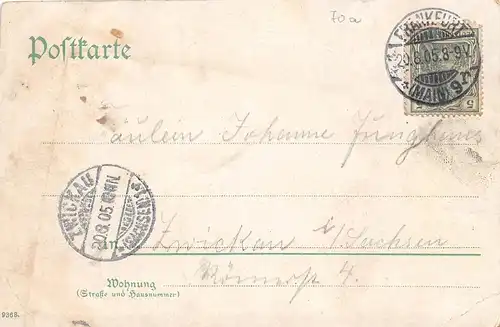 70a
Postkarte
FRANKFURT
20.8.05.8-9V.
* (MAIN) 9
5
äulein Johanne Junghanns
ZWICKAU
20.8.05.
(SACHSEN)
in Zwickau i/Sachsen
Römerstr 4.
Wohnung
(Straße und Hausnummer)
9368.